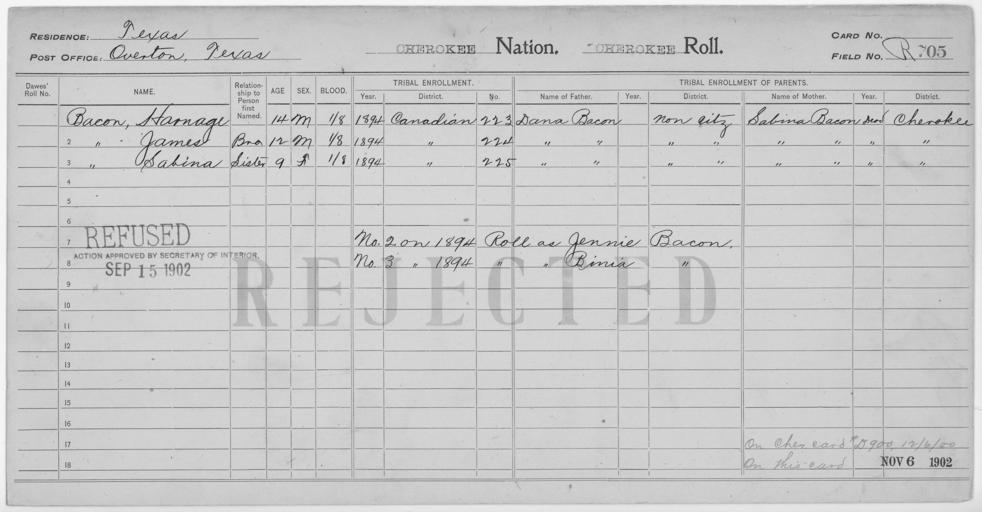 RESIDENCE: Texas
POST OFFICE: Overton, Texas
CHEROKEE Nation. CHEROKEE Roll.
CARD NO.
FIELD NO. R 705
Dawes' Roll No. NAME. Relationship to Person first Named. AGE SEX. BLOOD. TRIBAL ENROLLMENT. TRIBAL ENROLLMENT OF PARENTS.
Year. District. No. Name of Father. Year. District. Name of Mother. Year. District.
Bacon, Harnage 14 M 1/8 1894 Canadian 223 Dana Bacon non citz Sabina Bacon Dead Cherokee
2 " James Bro 12 M 1/8 1894 " 224 " " " " " " " "
3 " Sabina Sister 9 F 1/8 1894 " 225 " " " " " " " "
4
5
6
7 No. 2 on 1894 Roll as Jennie Bacon.
8 No. 3 " 1894 " " Binia "
REFUSED
ACTION APPROVED BY SECRETARY OF INTERIOR.
SEP 15 1902
REJECTED
9
10
11
12
13
14
15
16
17 On Cher card # D900 12/6/00
18 On this card NOV 6 1902